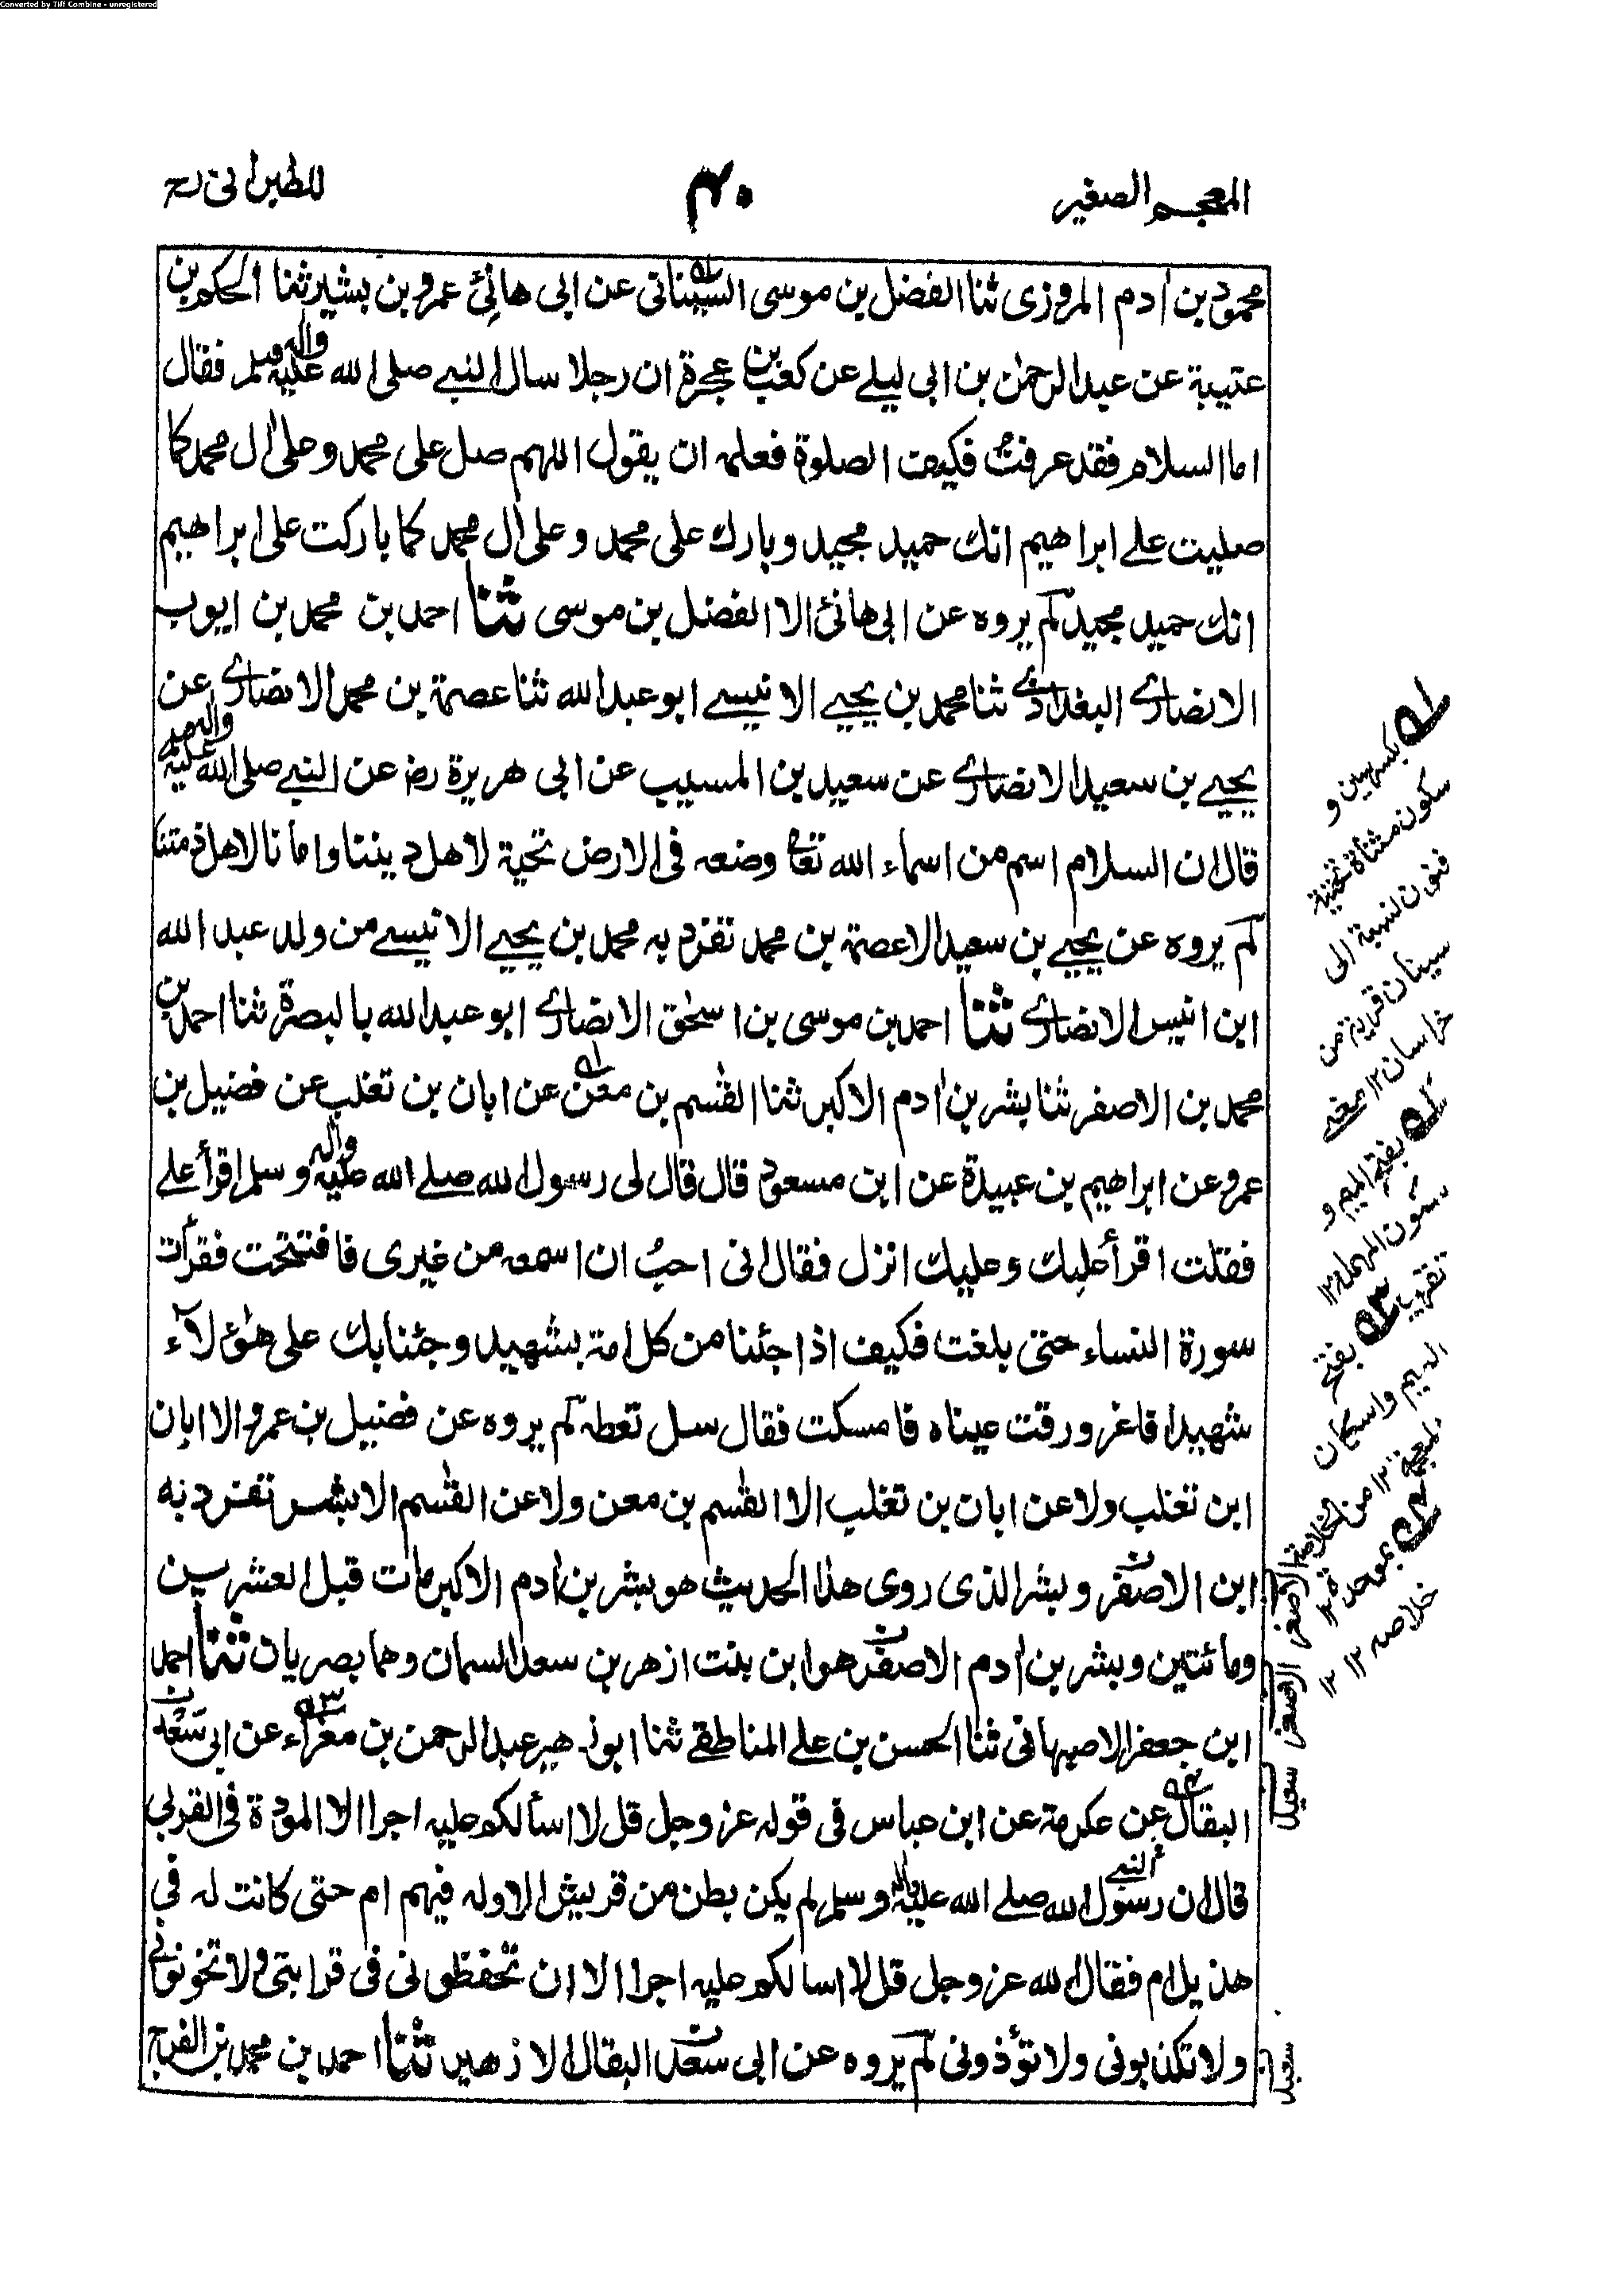 Converted by Tiff Combine - unregistered
المعجم الصغير
٤٠
للطبرانی رح
محمود بن اٰدم المروزی ثنا الفضل بن موسی السینانی عن ابی هانئ عمرو بن بشیر ثنا الحکم بن
عتیبة عن عبد الرحمٰن بن ابی لیلے عن کعب بن عجرة ان رجلا سال النبے صلی الله علیه واٰله وسلم فقال
اما السلام فقد عرفتُ فکیف الصلوة فعلمه ان یقول اللهم صل علی محمد وعلی اٰل محمد کما
صلیت علے ابراهیم انك حمید مجید وبارك علی محمد وعلی اٰل محمد کما بارکت علی ابراهیم
انك حمید مجید لم یروه عن ابی هانئ الا الفضل بن موسی ثنا احمد بن محمد بن ایوب
الانصاری البغدادی ثنا محمد بن یحیے الانیسے ابو عبد الله ثنا عصمة بن محمد الانصاری عن
یحیے بن سعید الانصاری عن سعید بن المسیب عن ابی هریرة رض عن النبے صلی الله علیه واٰله وسلم
قال ان السلام اسم من اسماء الله تعالی وضعه فی الارض تحیة لاهل دیننا وامانا لاهل ذمتنا
لم یروه عن یحیے بن سعید الا عصمة بن محمد تفرد به محمد بن یحیے الانیسے من ولد عبد الله
ابن انیس الانصاری ثنا احمد بن موسی بن اسحٰق الانصاری ابو عبد الله بالبصرة ثنا احمد بن
محمد بن الاصفر ثنا بشر بن اٰدم الاکبر ثنا القٰسم بن معن عن ابان بن تغلب عن فضیل بن
عمرو عن ابراهیم بن عبیدة عن ابن مسعود قال قال لی رسول الله صلے الله علیه واٰله وسلم اقرأ علے
فقلت اقرأ علیك وعلیك انزل فقال انی احبُ ان اسمعه من غیری فافتتحت فقرأت
سورة النساء حتی بلغت فکیف اذا جئنا من کل امة بشهید وجئنا بك علی هٰؤلآء
شهیدا فاغرورقت عیناه فامسکت فقال سل تعطه لم یروه عن فضیل بن عمرو الا ابان
ابن تغلب ولا عن ابان بن تغلب الا القٰسم بن معن ولا عن القٰسم الا بشر تفرد به
ابن الاصفر وبشر الذی روی هذا الحدیث هو بشر بن اٰدم الاکبر مات قبل العشرین
ومائتین وبشر بن اٰدم الاصفر هو ابن بنت ازهر بن سعد السمان وهما بصریان ثنا احمد
ابن جعفر الاصبهانی ثنا الحسن بن علے المناطقے ثنا ابو زهیر عبد الرحمن بن مغراء عن ابی سَعْد
البقال عن عکرمة عن ابن عباس فی قوله عز وجل قل لا اسألکم علیه اجرا الا المودة فی القربی
قال ان رسول الله النبے صلے الله علیه واٰله وسلم لم یکن بطن من قریش الا وله فیهم ام حتی کانت له فی
هذیل ام فقال الله عز وجل قل لا اسالکم علیه اجرا الا ان تحفظونی فی قرابتی ولا تخونونی
ولا تکذبونی ولا تؤذونی لم یروه عن ابی سعد البقال الا زهیر ثنا احمد بن محمد بن الفرج
بکسر سین و
سکون مثناة تحتیة
فنون لنسبة الی
سینان قریة من
خراسان ١٢ مغنے
بفتح المیم و
سکون المهملة ١٢
تقریب
بفتح
المیم واسکان
المعجمة ١٢ من الخلاصة
بموحدة
خلاصه ١٢
الاصغر
الاصغر
سعید
سعید